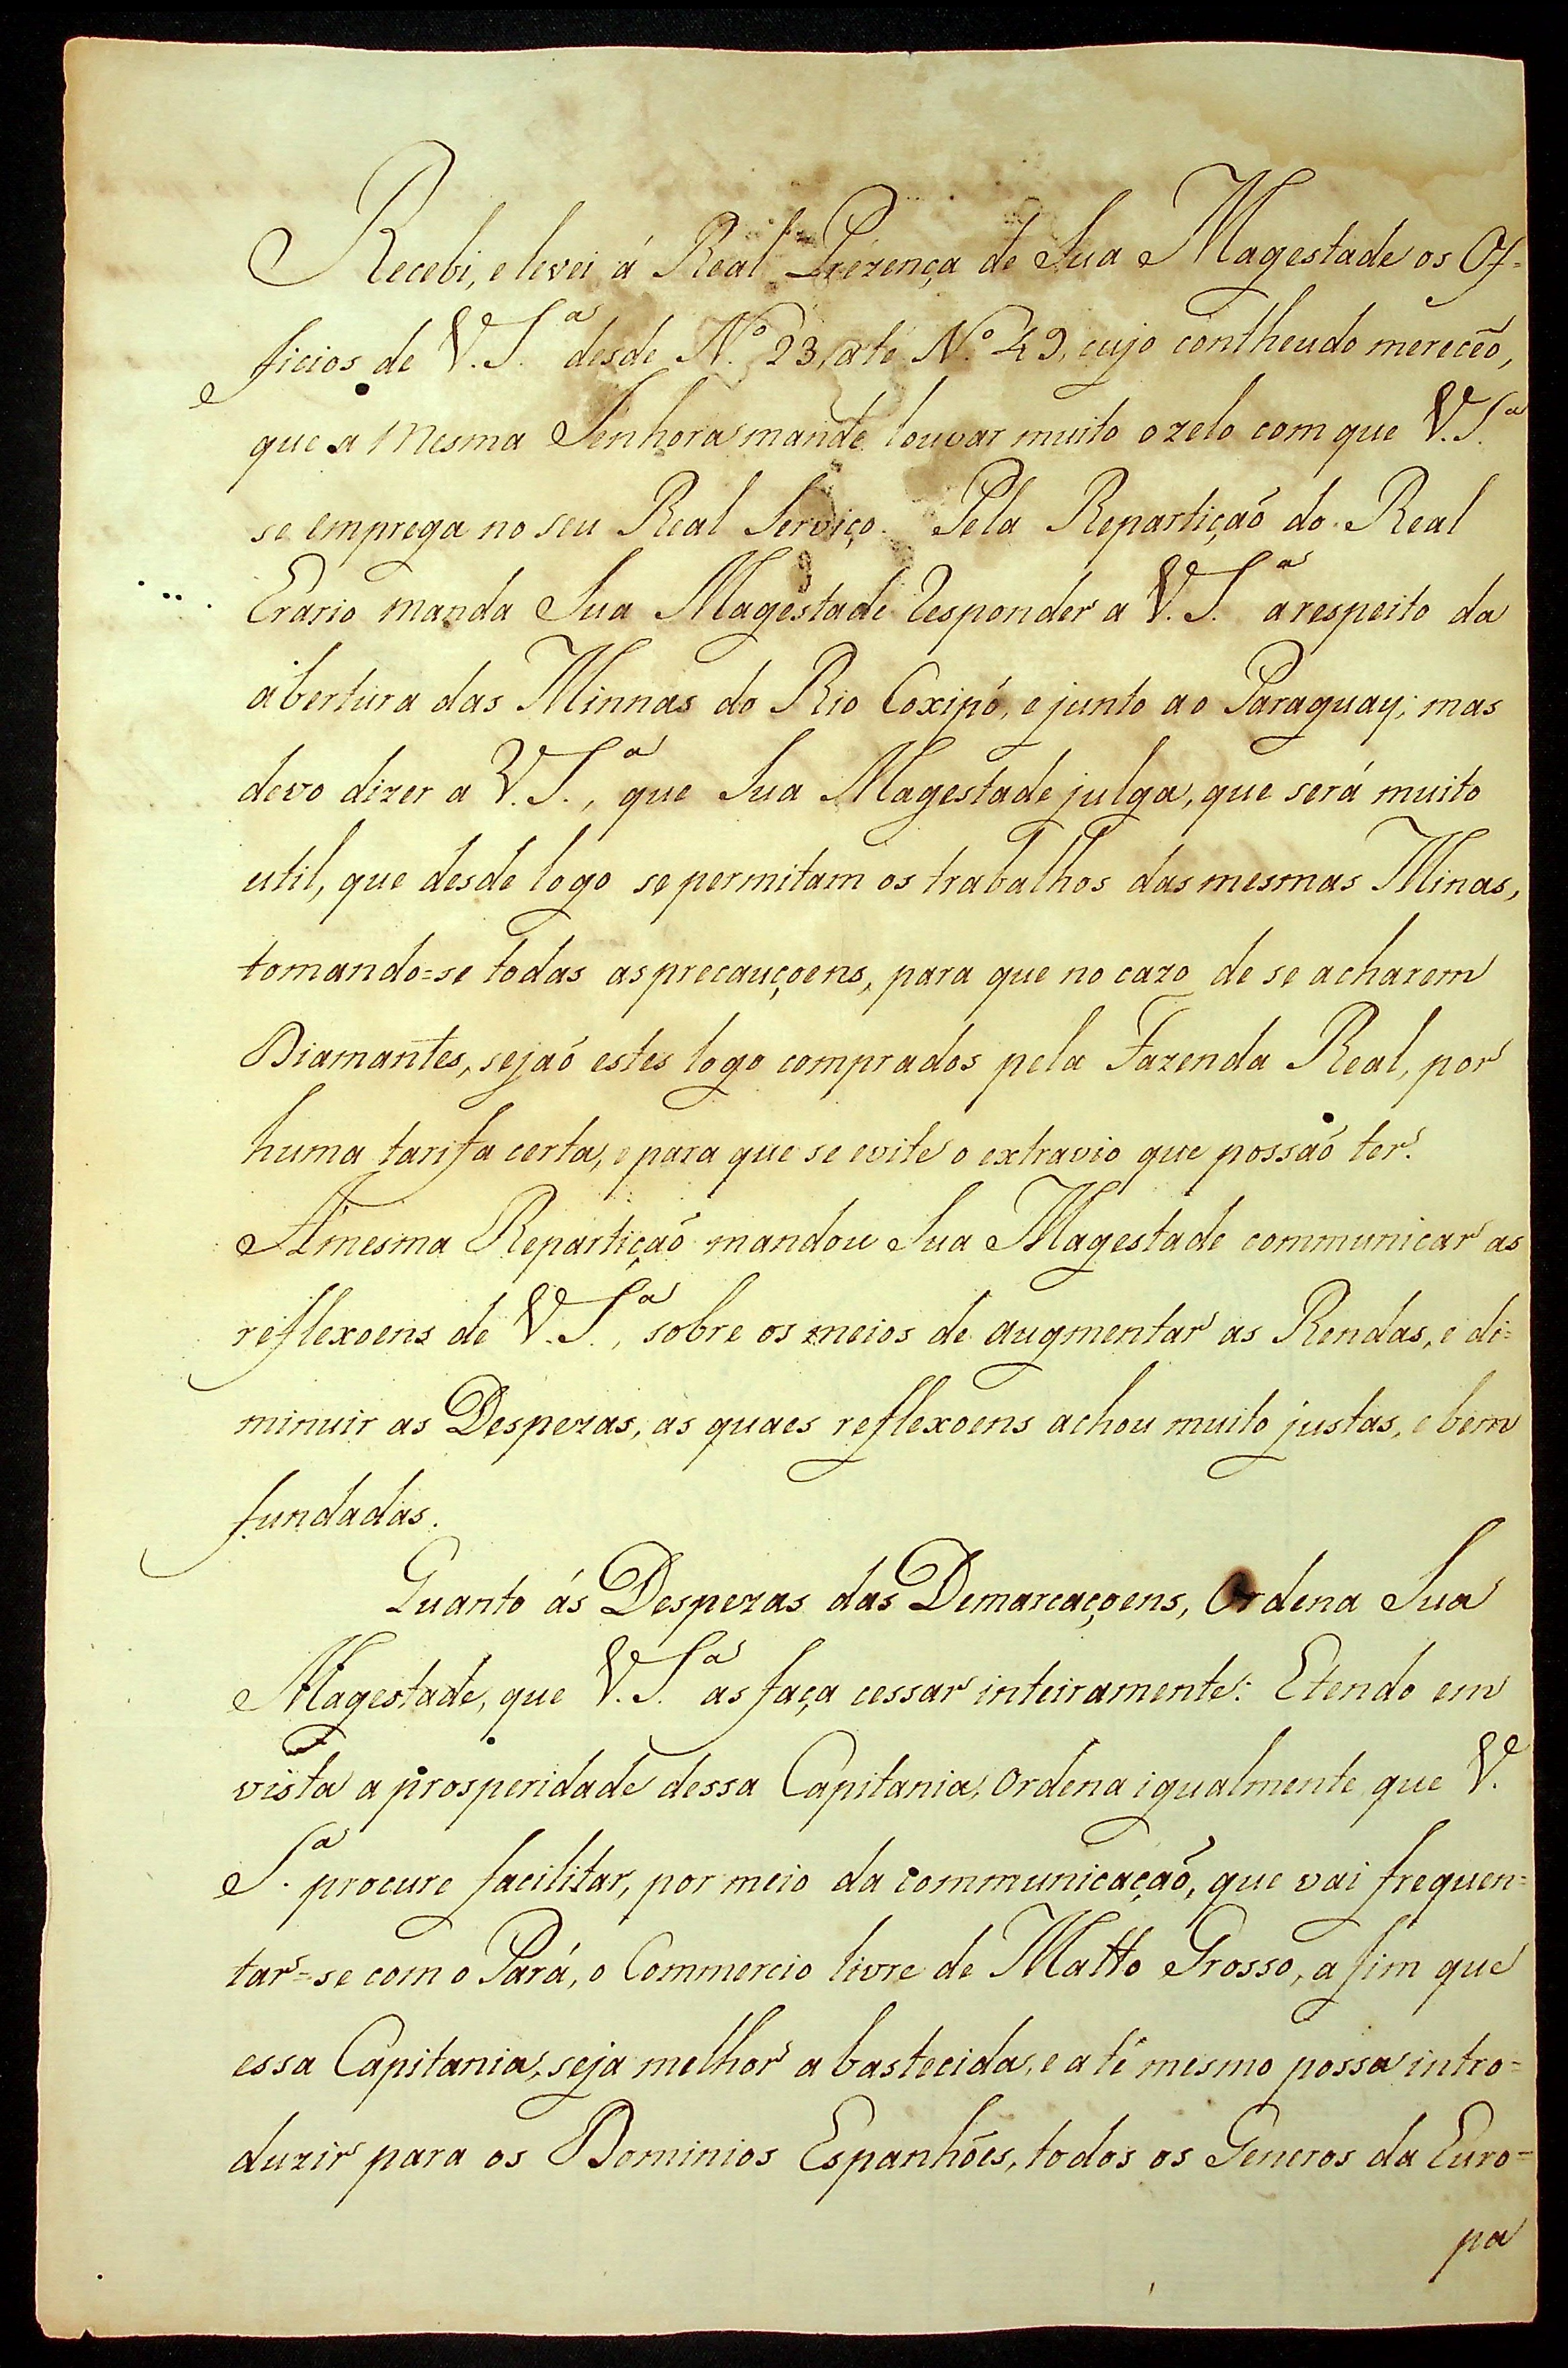 Recebi, e levei á Real Prezença de Sua Magestade os Of=
ficios de V. S.ª desde N.º 23, até N.º 49, cujo contheudo mereceo,
que a Mesma Senhora mande louvar muito o zelo com que V. S.ª
se emprega no seu Real Serviço. Pela Repartiçaõ do Real
Erario manda Sua Magestade responder a V. S.ª a respeito da
abertura das Minnas do Rio Coxipó, e junto ao Paraguay; mas
devo dizer a V. S.ª, que Sua Magestade julga, que será muito
util, que desde logo se permitam os trabalhos das mesmas Minas,
tomando=se todas as precauçoens, para que no cazo de se acharem
Diamantes, sejaõ estes logo comprados pela Fazenda Real, por
huma tarifa certa, e para que se evite o extravio que possaõ ter.
A'mesma Repartiçaõ mandou Sua Magestade communicar as
reflexoens de V. S.ª, sobre os meios de augmentar as Rendas, e di=
minuir as Despezas, as quaes reflexoens achou muito justas, e bem
fundadas.
Quanto ás Despezas das Demarcaçoens, Ordena Sua
Magestade, que V. S.ª as faça cessar inteiramente: E tendo em
vista a prosperidade dessa Capitania, Ordena igualmente que V.
S.ª procure facilitar, por meio da communicaçaõ, que vai frequen=
tar=se com o Pará, o Commercio livre de Matto Grosso, a fim que
essa Capitania, seja melhor abastecida, e até mesmo possa intro=
duzir para os Dominios Espanhóes, todos os Generos da Euro=
pa